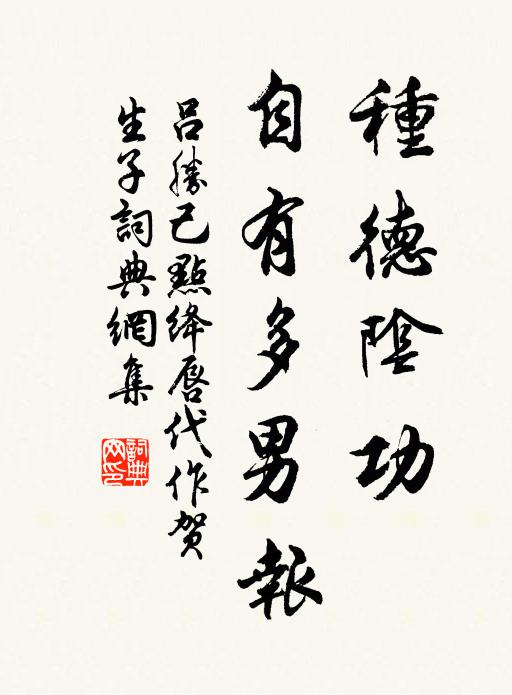 種德陰功
自有多男報
呂勝己點絳唇代作賀
生子詞典網集
詞典
网印